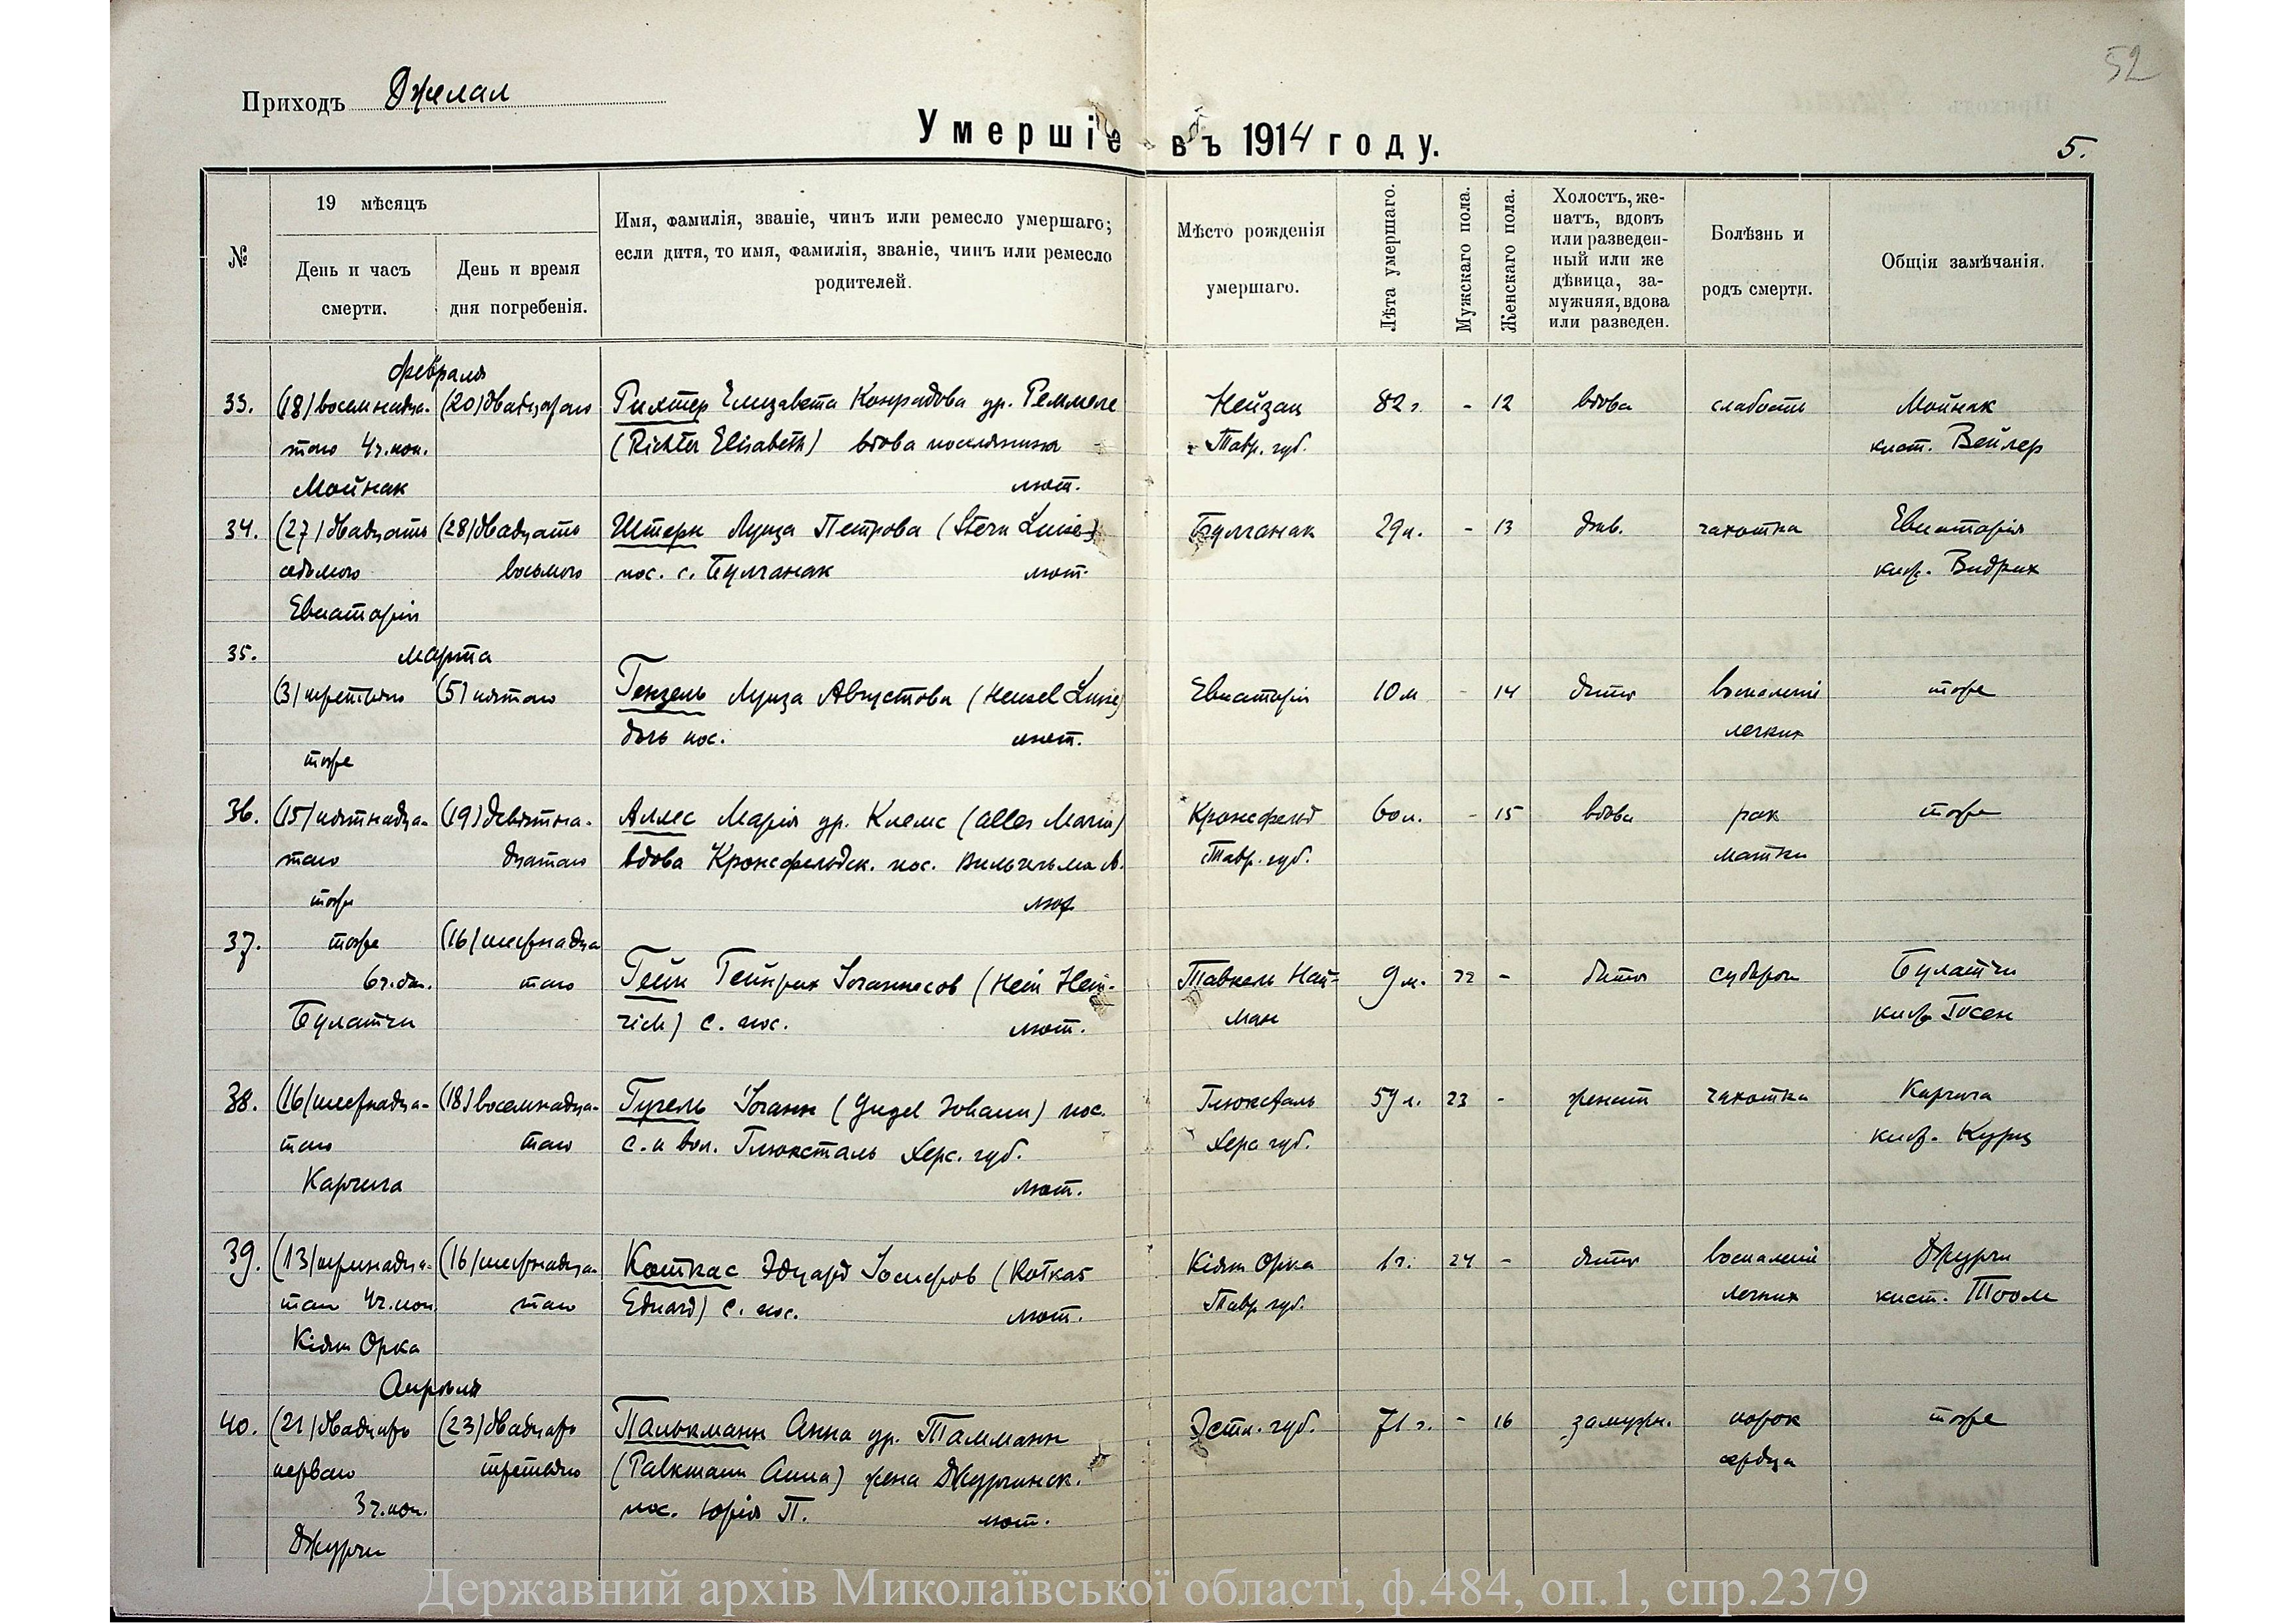 52
Приходъ Джелал
Умершіе въ 1914 году.
5.
№
19 мѣсяцъ
День и часъ смерти.
День и время дня погребенія.
Имя, фамилія, званіе, чинъ или ремесло умершаго;
если дитя, то имя, фамилія, званіе, чинъ или ремесло
родителей.
Мѣсто рожденія
умершаго.
Лѣта умершаго.
Мужскаго пола.
Женскаго пола.
Холостъ, же-
натъ, вдовъ
или разведен-
ный или же
дѣвица, за-
мужняя, вдова
или разведен.
Болѣзнь и
родъ смерти.
Общія замѣчанія.
февраля
33. (18) восемнадца- (20) двадцатаго Рихтер Елизавета Конрадова ур. Реммеле Нейзац 82 г. - 12 вдова слабость Мойнак
таго 4 ч. поп. (Richter Elisabeth) вдова поселянина Тавр. губ. кист. Вейлер
Мойнак лют.
34. (27) двадцать (28) двадцать Штерн Луиза Петрова (Stern Luise) Булганак 29 л. - 13 дѣв. чахотка Евпаторія
седьмого восьмого пос. с. Булганак лют. кист. Видрих
Евпаторія
35. марта
(3) третьяго (5) пятаго Гензель Луиза Августова (Hensel Luise) Евпаторія 10 м - 14 дитя воспаленіе тоже
дочь пос. лют. легких
тоже
36. (15) пятнадца- (19) девятна- Аллес Марія ур. Клемс (Alles Maria) Кронсфельд 60 л. - 15 вдова рак тоже
таго дцатаго вдова Кронсфельдск. пос. Вильгельма А. Тавр. губ. матки
тоже лют
37. тоже (16) шестнадца
6 ч. дн. таго Гейн Гейнрих Іоганнесов (Hein Hein- Тавкель Най- 9 м. 22 - дитя судорог Булатчи
Булатчи rich) с. пос. лют. ман кист.
38. (16) шестнадца- (18) восемнадца- Гугель Іоганн (Gugel Johann) пос. Глюксталь 59 л. 23 - женат чахотка Карчига
таго таго с. и вол. Глюксталь Херс. губ. Херс губ. кист. Курц
Карчига лют.
39. (13) тринадца- (16) шестнадца- Коткас Эдуард Іосифов (Kotkas Кіят Орка 1 г. 24 - дитя воспаленіе Джурчи
таго 4 ч. поп. таго Eduard) с. пос. лют. Тавр губ. легких кист. Тоом
Кіят Орка
Апрѣля
40. (21) двадцать (23) двадцать Палькманн Анна ур. Тамманн Эстл. губ. 71 г. - 16 замужн. порок тоже
перваго третьяго (Palkmann Anna) жена Джурчинск. сердца
3 ч. поп. пос. Юрія П. лют.
Джурчи
Державний архів Миколаївської області, ф.484, оп.1, спр.2379